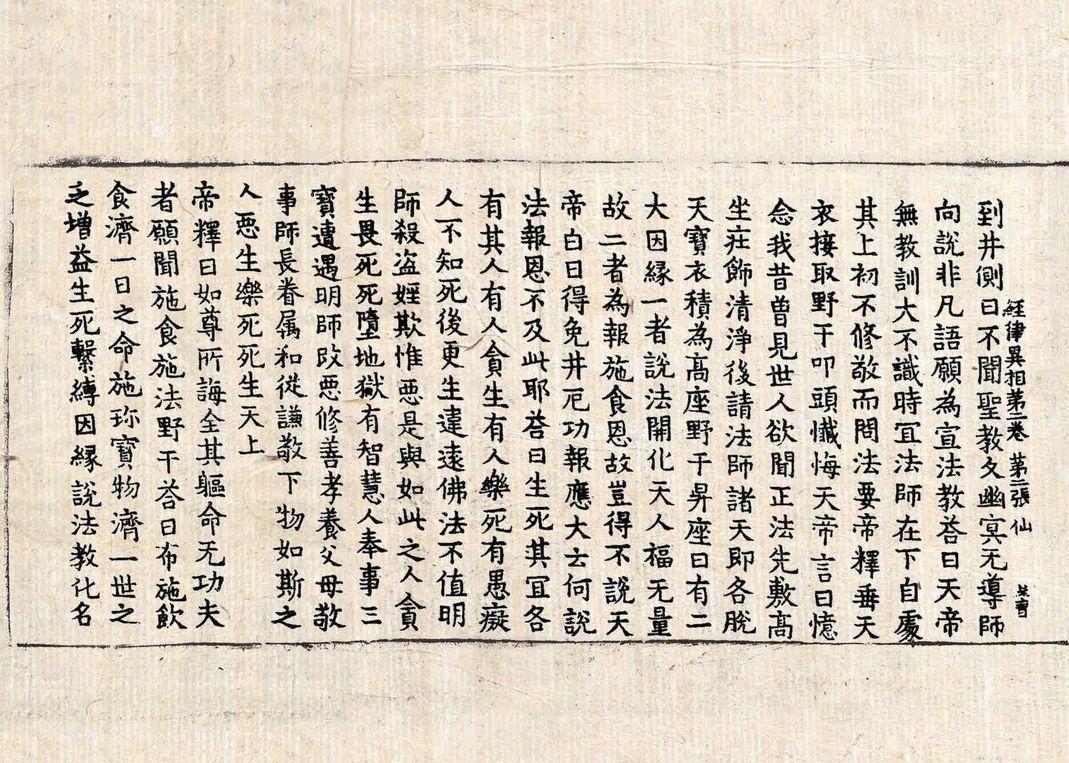 經律異相第二卷 第二張 仙
到井側曰不聞聖教久幽冥无導師
向說非凡語願為宣法教荅曰天帝
無教訓大不識時冝法師在下自處
其上初不修敬而問法要帝釋垂天
衣接取野干叩頭懺悔天帝言曰憶
念我昔曾見世人欲聞正法先敷髙
坐莊飾清淨後請法師諸天即各脫
天寶衣積為髙座野干昇座曰有二
大因縁一者說法開化天人福无量
故二者為報施食恩故豈得不說天
帝白曰得免井厄功報應大云何說
法報恩不及此耶荅曰生死其冝各
有其人有人貪生有人樂死有愚癡
人不知死後更生違遠佛法不值明
師殺盗婬欺惟惡是與如此之人貪
生畏死死墮地獄有智慧人奉事三
寶遭遇明師改惡修善孝養父母敬
事師長眷属和從謙敬下物如斯之
人惡生樂死死生天上
帝釋曰如尊所誨全其軀命无功夫
者願聞施食施法野干荅曰布施飲
食濟一日之命施珎寶物濟一世之
乏增益生死繫縛因縁說法教化名